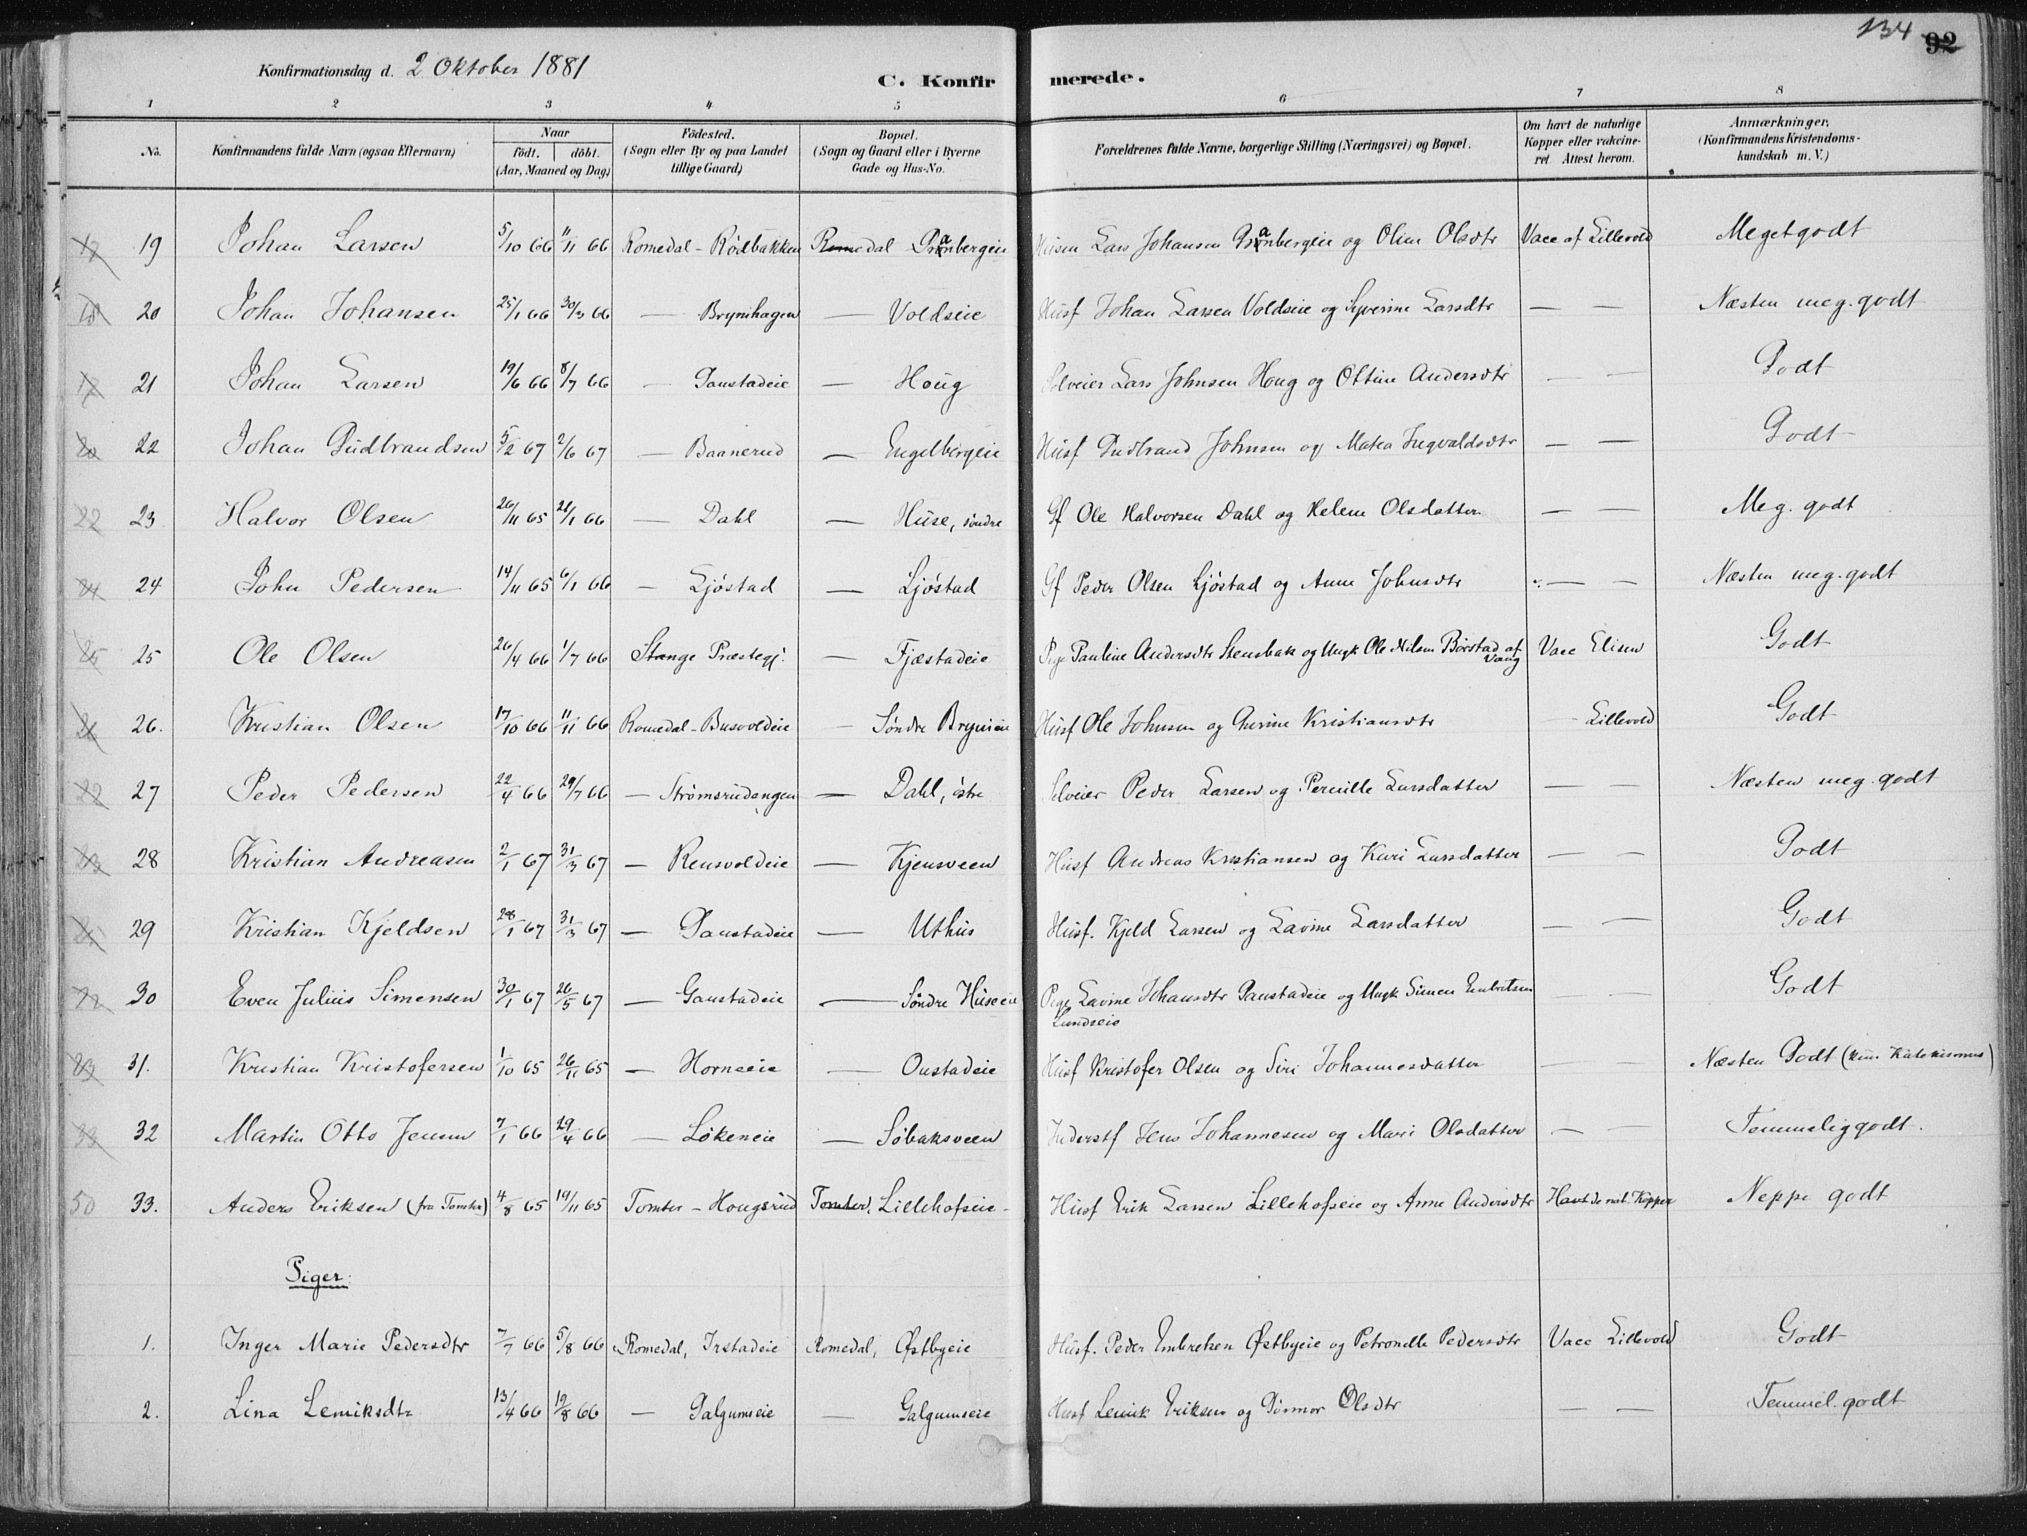 134 92
Konfirmationsdag d. 2 Oktober 1881
C. Konfirmerede.
1 2 3 4 5 6 7 8
No. Konfirmandens fulde Navn (ogsaa Efternavn) Naar födt. döbt. (Aar, Maaned og Dag) Födested. (Sogn eller By og paa Landet tillige Gaard) Bopæl. (Sogn og Gaard eller i Byerne Gade og Hus-No. Forældrenes fulde Navne, borgerlige Stilling (Næringsvei) og Bopæl. Om havt de naturlige Kopper eller vakcineret. Attest herom. Anmærkninger, (Konfirmandens Kristendomskundskab m. V.)
19 Johan Larsen 5/10 66 11/11 66 Romedal - Rödbakken Romedal Lars Johansen og Oline Olsdtr Vacc af Lillevold Meget godt
20 Johan Johansen 25/1 66 30/3 66 — Brynihagen — Voldseie Husf Johan Larsen Voldseie og Syverine Larsdtr — — Næsten meg. godt
21 Johan Larsen 19/6 66 8/7 66 — Gaustadeie — Houg Selveier Lars Johnsen Houg og Ottine Andersdtr — — Godt
22 Johan Gudbrandsen 5/2 67 2/6 67 — Baanerud — Engelbergeie Husf Gudbrand Johnsen og Matea Ingvaldsdtr — — Godt
23 Halvor Olsen 26/11 65 21/1 66 — Dahl — Huse, söndre Gf Ole Halvorsen Dahl og Helene Olsdatter — — Meg. godt
24 John Pedersen 14/11 65 6/1 66 — Ljøstad — Ljøstad Gf Peder Olsen Ljøstad og Anne Johnsdtr — — Næsten meg. godt
25 Ole Olsen 26/4 66 1/7 66 Stange Præstegj. — Fjæstadeie Pige Pauline Andersdtr Stensbak og Ungk Ole Nilsen Börstad af Vang Vacc Elisen Godt
26. Kristian Olsen 17/10 66 11/11 66 Romedal - Busvoldeie — Söndre Brynieie Husf Ole Johnsen og Gurine Kristiansdtr — Lillevold Godt
27 Peder Pedersen 22/4 66 29/7 66 — Strømsrudengen — Dahl, östre Selveier Peder Larsen og Pernille Larsdatter — — Næsten meg. godt
28 Kristian Andreasen 2/1 67 31/3 67 — Rensvoldeie — Kjensveen Husf Andreas Kristiansen og Kari Larsdatter — — Godt
29 Kristian Kjeldsen 28/1 67 31/3 67 — Gaustadeie — Uthus Husf. Kjeld Larsen og Lavine Larsdatter — — Godt
30 Even Julius Simensen 30/1 67 26/5 67 — Gaustadeie — Söndre Huseeie Pige Lavine Johansdtr Gaustadeie og Ungk Simen Embretsen Lundseie — — Godt
31. Kristian Kristofersen 1/10 65 26/11 65 — Horneeie — Oustadeie Husf Kristofer Olsen og Siri Johannesdatter — — Næsten Godt (kun Katekismus)
32 Martin Otto Jensen 7/1 66 29/4 66 — Løkeneie — Søbaksveen Inderstf Jens Johannesen og Mari Olsdatter — — Temmelig godt.
50 33. Anders Eriksen (fra Tomter) 4/8 65 19/11 65 Tomter - Hougsrud Tomter, Lillehofseie Husf Erik Larsen Lillehofseie og Anne Andersdtr Havt de nat. Kopper Neppe godt
Piger.
1. Inger Marie Pedersdtr 7/7 66 5/8 66 Romedal, Irstadeie Romedal, Østbyeie Husf. Peder Embretsen Østbyeie og Petronelle Pedersdtr Vacc Lillevold Godt
2. Lina Lemiksdtr 13/4 66 12/8 66 — Galgumseie — Galgumseie Husf Lemik Eriksen og Gurmor Olsdtr — — Temmel. godt